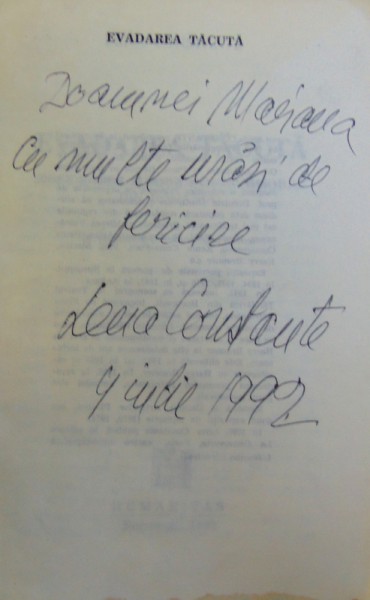 EVADAREA TĂCUTĂ
Doamnei Mariana
Cu multe urări de
fericire
Lena Constante
9 iulie 1992
HUMANITAS